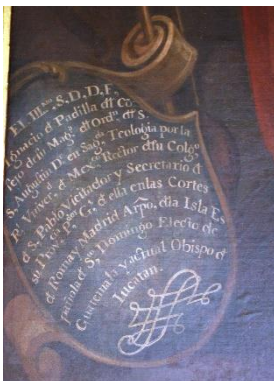 El Ill.mo S. D. D. F.
Ignacio d Padilla dl Co
sejo de su Mag.d dl Ord.n de S.
S. Augustin D.r en Sag.da Teologia por la
R.l Univer.d d Mex.co Rector dsu Colg.o
d S. Pablo Vicitador y Secretario d
su Prov.a P.or G.l d ella en las Cortes
d Roma y Madrid Arpo. dla Isla Es
pañola d S.to Domingo Electo de
Guatemala y actual Obispo de
Iucatan.